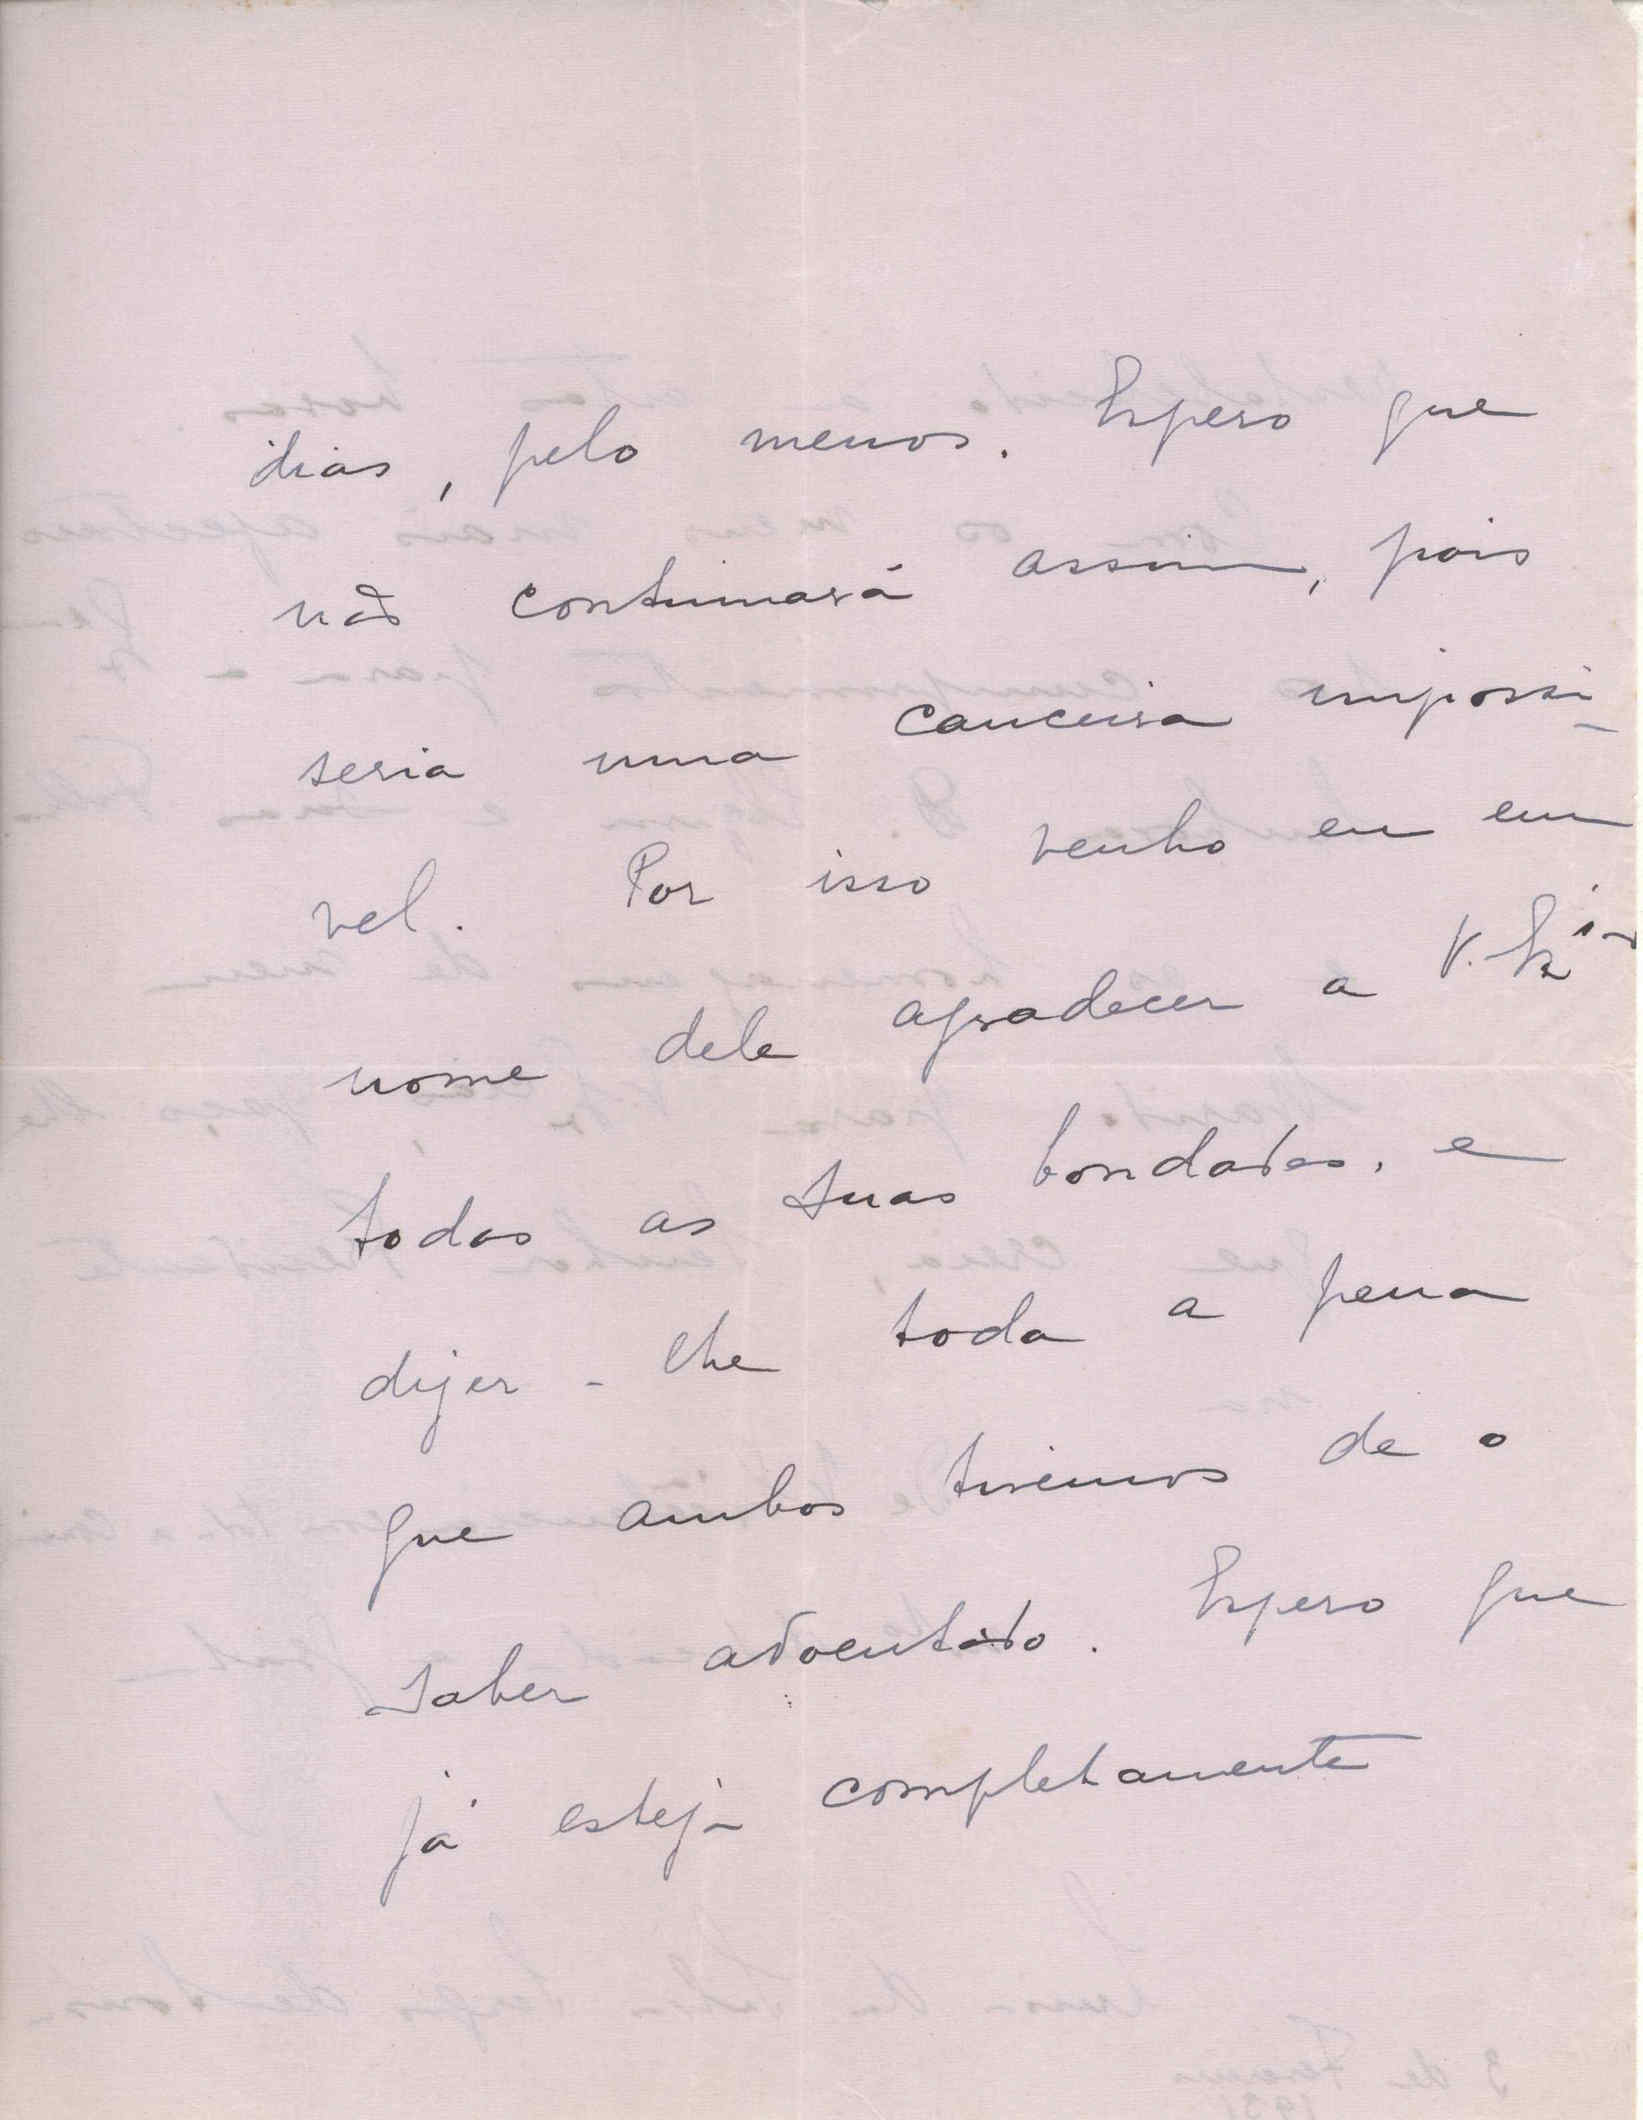 dias, pelo menos. Espero que
não continuará assim, pois
seria uma canceira impossi-
vel. Por isso venho eu em
nome dele agradecer a V. Ex.cia
todas as suas bondades, e
dizer-lhe toda a pena
que ambos tivemos de o
saber adoentado. Espero que
já esteja completamente